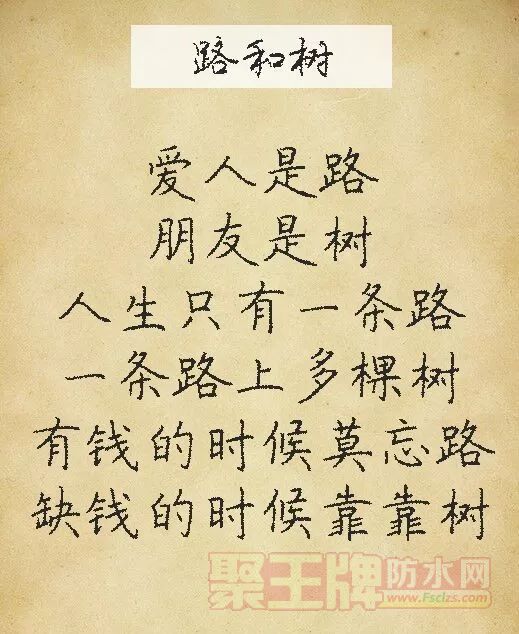 路和树
爱人是路
朋友是树
人生只有一条路
一条路上多棵树
有钱的时候莫忘路
缺钱的时候靠靠树
聚王牌防水网
www.Fsclzs.com